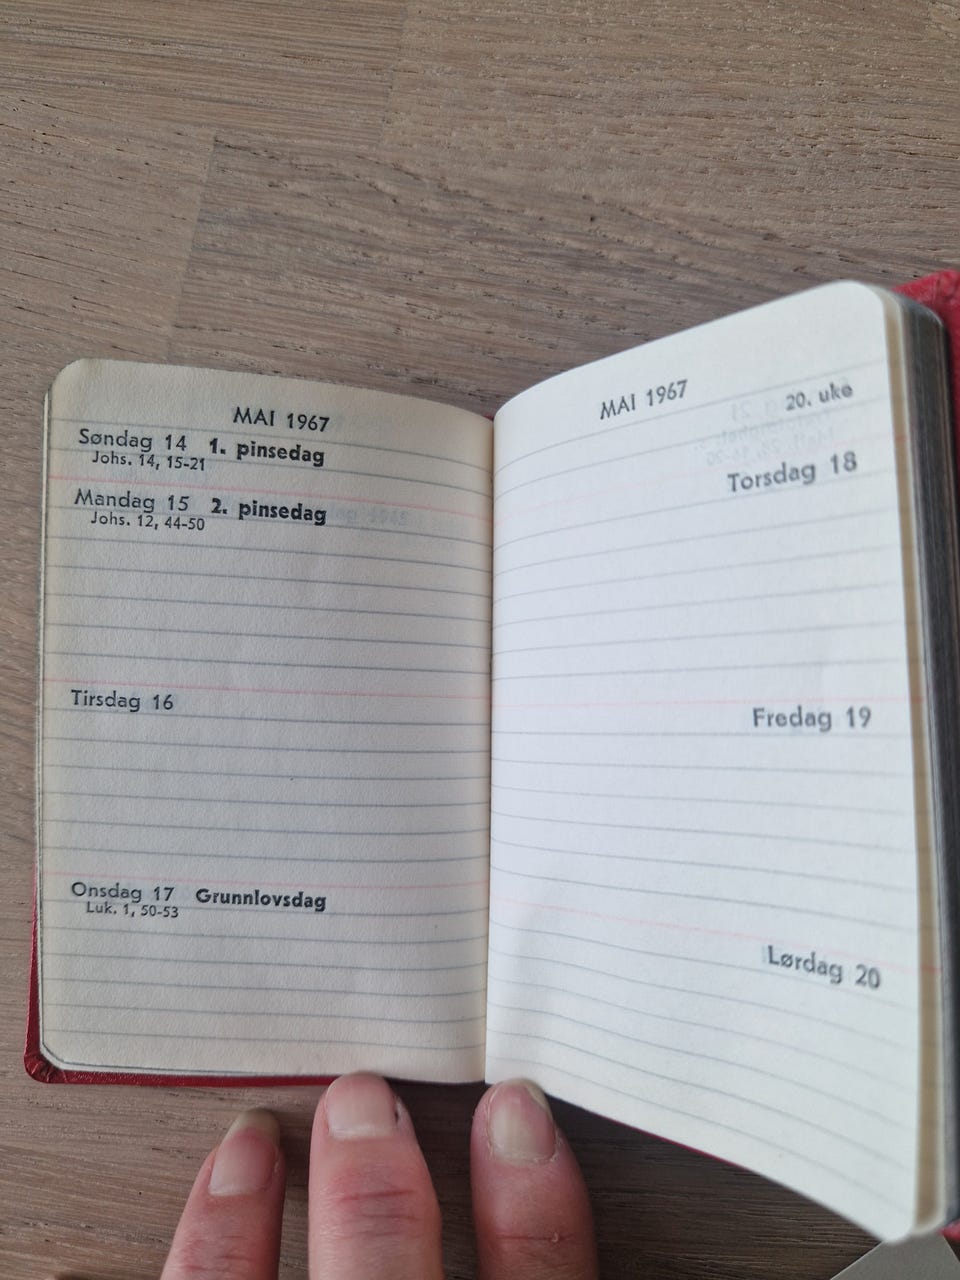 MAI 1967
Søndag 14 1. pinsedag
Johs. 14, 15-21
Mandag 15 2. pinsedag
Johs. 12, 44-50
Tirsdag 16
Onsdag 17 Grunnlovsdag
Luk. 1, 50-53
MAI 1967
20. uke
Torsdag 18
Fredag 19
Lørdag 20